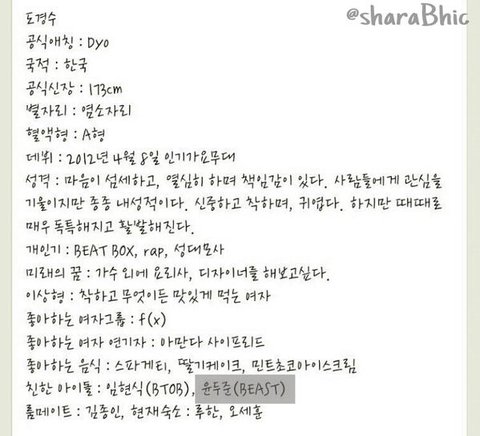 @sharaBhic
도경수
공식애칭 : Dyo
국적 : 한국
공식신장 : 173cm
별자리 : 염소자리
혈액형 : A형
데뷔 : 2012년 4월 8일 인기가요무대
성격 : 마음이 섬세하고, 열심히 하며 책임감이 있다. 사람들에게 관심을
기울이지만 종종 내성적이다. 신중하고 착하며, 귀엽다. 하지만 때때로
매우 독특해지고 활발해진다.
개인기 : BEAT BOX, rap, 성대모사
미래의 꿈 : 가수 외에 요리사, 디자이너를 해보고싶다.
이상형 : 착하고 무엇이든 맛있게 먹는 여자
좋아하는 여자그룹 : f(x)
좋아하는 여자 연기자 : 아만다 사이프리드
좋아하는 음식 : 스파게티, 딸기케이크, 민트초코아이스크림
친한 아이돌 : 임현식(BTOB), 윤두준(BEAST)
룸메이트 : 김종인, 현재숙소 : 루한, 오세훈